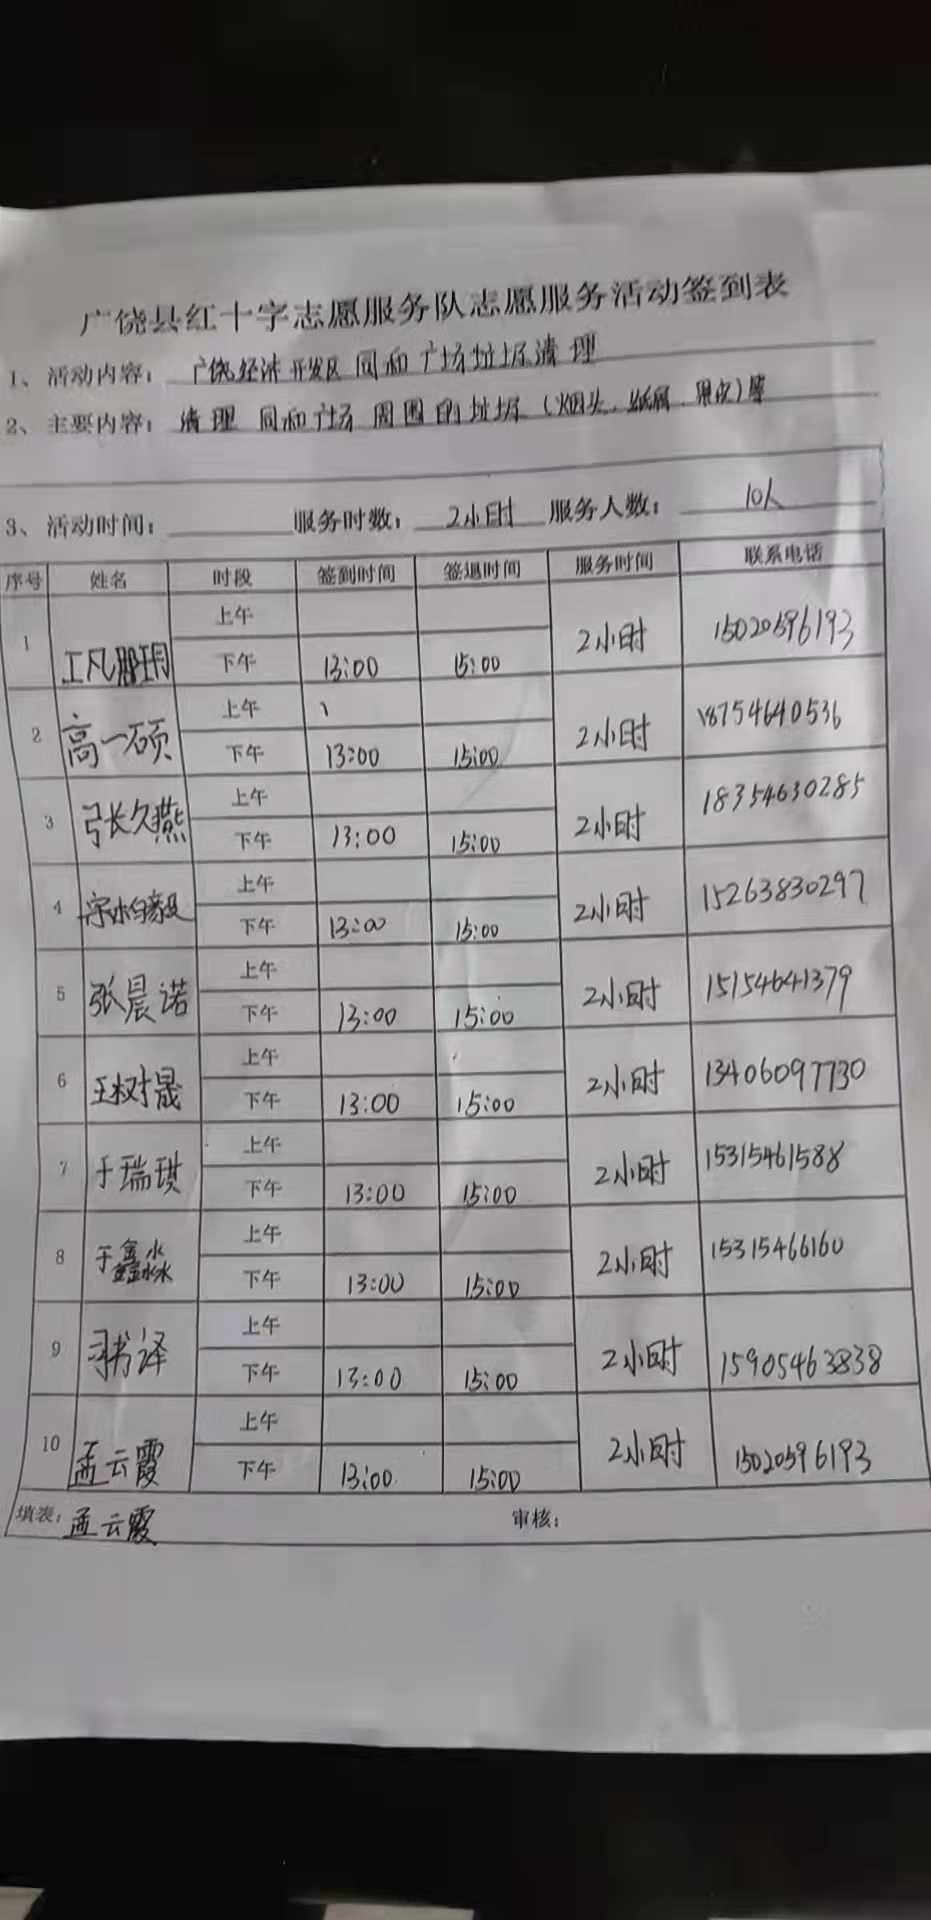 广饶县红十字志愿服务队志愿服务活动签到表
1、活动内容：广饶经济开发区同和广场垃圾清理
2、主要内容：清理同和广场周围的垃圾（烟头、纸屑、果皮）等
3、活动时间： 服务时数：2小时 服务人数：10人
序号 姓名 时段 签到时间 签退时间 服务时间 联系电话
1 上午 2小时 15020596193
下午 13:00 15:00
2 高一硕 上午 2小时 18754640536
下午 13:00 15:00
3 张久燕 上午 2小时 18354630285
下午 13:00 15:00
4 上午 2小时 15263830297
下午 13:00 15:00
5 张晨诺 上午 2小时 15154641379
下午 13:00 15:00
6 王树晟 上午 2小时 13406097730
下午 13:00 15:00
7 于瑞琪 上午 2小时 15315461588
下午 13:00 15:00
8 于鑫淼 上午 2小时 15315466160
下午 13:00 15:00
9 书译 上午 2小时 15905463838
下午 13:00 15:00
10 孟云霞 上午 2小时 15020596193
下午 13:00 15:00
填表：孟云霞 审核：